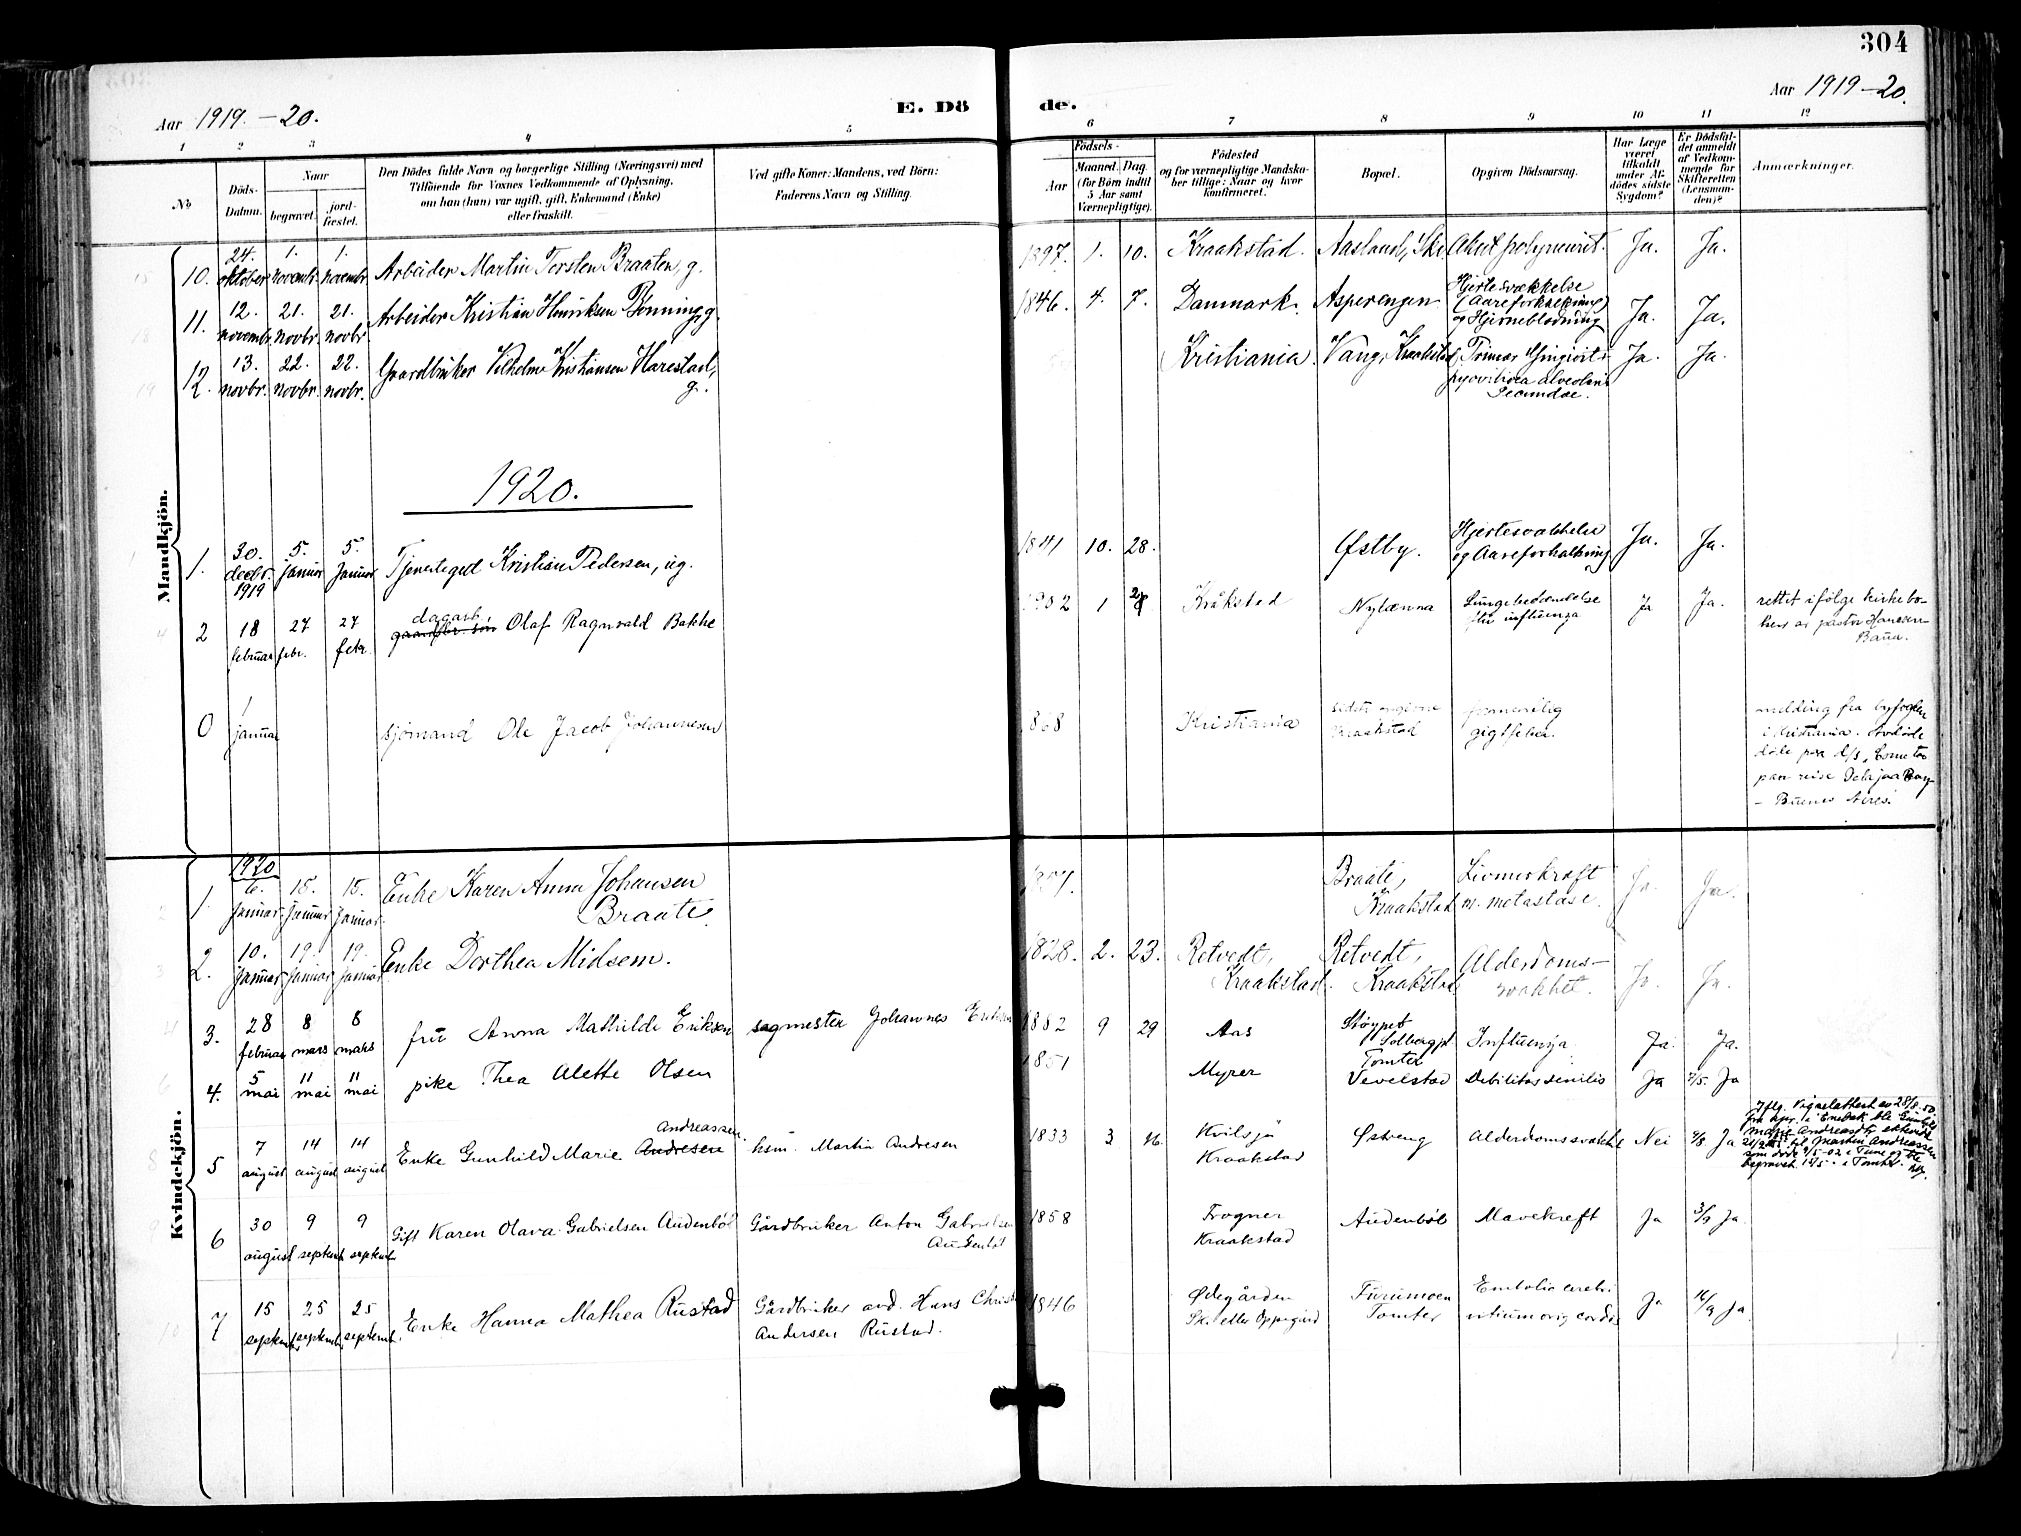 304
Aar 1919.-20.
E. Dö
de.
Aar 1919-20.
1 2 3 4 5 6 7 8 9 10 11 12
No
Döds-
Datum.
Naar
begravet.
jord-
fæstet.
Den Dödes fulde Navn og borgerlige Stilling (Næringsvei) med
Tilföiende for Voxnes Vedkommende af Oplysning,
om han (hun) var ugift, gift, Enkemand (Enke)
eller fraskilt.
Ved gifte Koner: Mandens, ved Börn:
Faderens Navn og Stilling.
Födsels-
Aar
Maaned.
Dag.
(for Börn indtil
5 Aar samt
Værnepligtige).
Födested
og for værnepligtige Mandska-
ber tillige: Naar og hvor
konfirmeret.
Bopæl.
Opgiven Dödsaarsag.
Har Læge
været
tilkaldt
under Af-
dödes sidste
Sygdom?
Er Dödsfal-
det anmeldt
af Vedkom-
mende for
Skifteretten
(Lensman-
den)?
Anmærkninger.
Mandkjön.
24. 1. 1.
10. oktober novembr. novembr. Arbeider Martin Torsten Braaten, g. 1897. 1. 10. Kraakstad. Aasland, Ski Akut polyneurit. Ja. Ja.
12. 21. 21.
11. novembr. novbr. novbr. Arbeider Kristian Henriksen Bonning, g. 1846. 4. 7. Danmark. Asperengen Hjertesvækkelse
(Aareforkalkning)
og Hjerneblødning Ja. Ja.
13. 22. 22.
12. novbr. novbr. novbr. Gaardbruker Vilhelm Kristiansen Harestad,
g. Kristiania. Vang, Kraakstad Ja. Ja.
alveolaris
Secundae.
1920.
30. 5. 5.
1. decbr. januar januar Tjenestegut Kristian Pedersen, ug. 1841 10. 28. Østby. Hjertesvækkelse
og Aareforkalkning Ja. Ja.
1919
dagarb.
2 18 27 27 Olaf Ragnvald Bakke 1902 1 28 Kråkstad Nylænna Lungebetændelse
efter influenza Ja Ja.
februar febr. febr.
rettet ifølge kirkebo-
ken av pastor Hansen-
Baua.
1
0 januar sjømand Ole Jacob Johannesen 1868 Kristiania sidst angivne
Kraakstad
gigtfeber.
melding fra byfogden
i Kristiania. Avdøde
døde paa d/s
paa reise
- Buenos Aires.
Kvindekjön.
1920
6. 15. 15.
1. januar. januar januar. Enke Karen Anna Johansen
Braate. Braate,
Kraakstad Livmorkræft
m. metastase. Ja. Ja.
10. 19. 19.
2. januar januar januar Enke Dorthea Midsem. 1828. 2. 23. Retvedt,
Kraakstad. Retvedt,
Kraakstad. Alderdoms-
svakhet. Ja. Ja.
3. 28 8 8
februar mars mars fru Anna Mathilde Eriksen sagmester Johannes Eriksen 1882 9 29 Aas
Solbergjt
Tomter Influenza Ja. Ja.
4. 5 11 11
mai mai mai pike Thea Alette Olsen 1851 Myrer Vevelstad Debilitas senilis Ja 7/5. Ja
5 7 14 14
august august august Enke Gunhild Marie Andresen
Andreassen. hsm. Martin Andresen 1833 3 16. Kvilsjø
Kraakstad Østreng Alderdomssvakhet Nei 9/8. Ja
Iflg. Vigselattest av 28/8.50.
fra spr. i Enebak ble Gunhild
Marie Andreasdtr ektevidd
til Martin Andreassen
som døde 9/5-02 i Tune og ble
begravet 15/5. i Tomter.
6 30 9 9
august septemb. septemb. Gift Karen Olava Gabrielsen Audenbøl Gårdbruker Anton Gabrielsen
Audenbøl 1858 Frogner
Kraakstad Audenbøl Mavekreft Ja 3/9 Ja.
7 15 25 25
septembr septemb. septemb. Enke Hanna Mathea Rustad Gårdbruker avd. Hans Christian
Andersen Rustad. 1846 Ødegården
Sk. eller Oppegård Furumoen
Tomter Embolia cerebri
Ja 16/9 Ja.